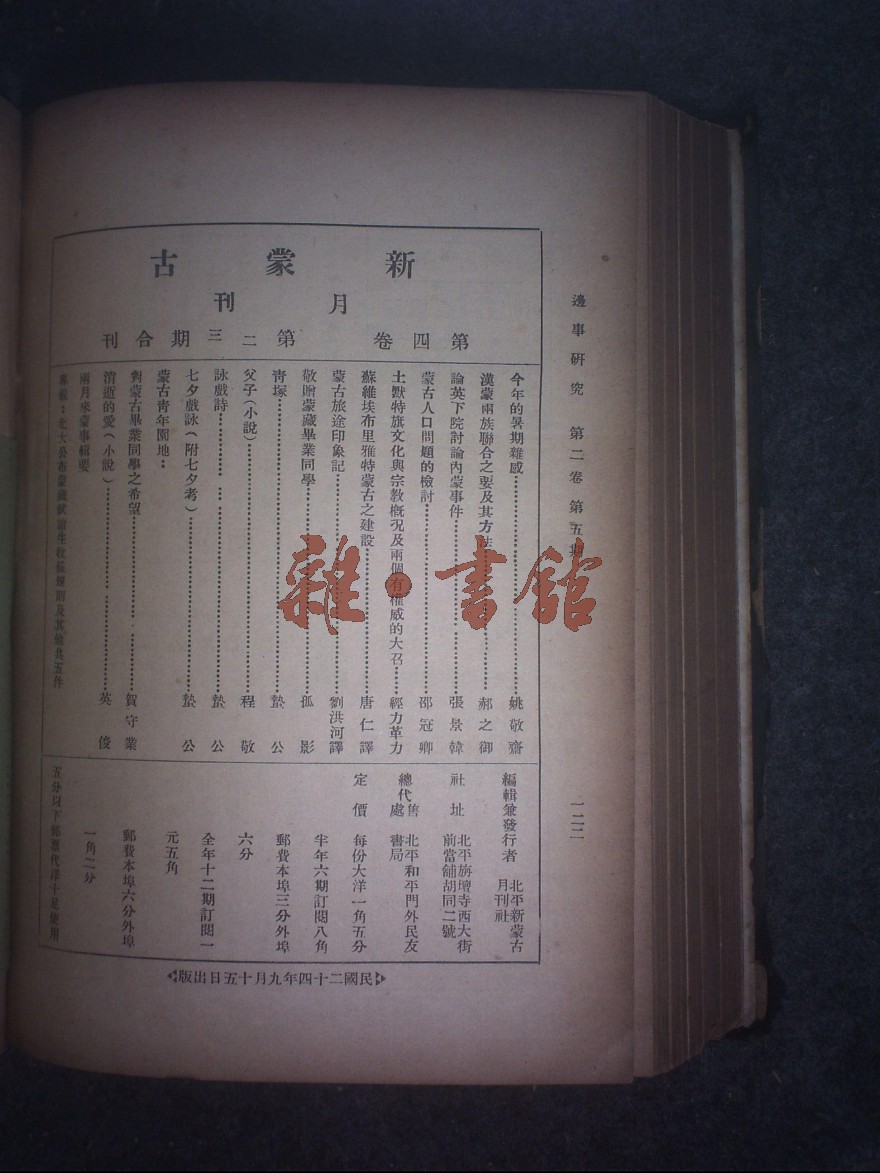 邊事研究 第二卷 第五期
一二二
新蒙古
月刊
第四卷 第二三期合刊
今年的暑期雜感………姚敬齋
漢蒙兩族聯合之要及其方法………郝之御
論英下院討論內蒙事件………張景韓
蒙古人口問題的檢討………邵冠卿
土默特旗文化與宗教概况及兩個有權威的大召………經力革力
蘇維埃布里雅特蒙古之建設………唐仁譯
蒙古旅途印象記………劉洪河譯
敬贈蒙藏畢業同學………孤影
青塚………蟄公
父子(小說)………程敬
詠戲詩………蟄公
七夕戲詠(附七夕考)………蟄公
蒙古青年園地：
對蒙古畢業同學之希望………賀守業
消逝的愛(小說)………英俊
兩月來蒙事輯要
專載：北大公布蒙藏 生 則及其他共五件
編輯兼發行者 北平新蒙古月刊社
社址 北平旃壇寺西大街前當舖胡同二號
總代售處 北平和平門外民友書局
定價 每份大洋一角五分
半年六期訂閱八角
郵費本埠三分外埠
六分
全年十二期訂閱一
元五角
郵費本埠六分外埠
一角二分
五分以下郵票代洋十足使用
民國二十四年九月十五日出版
雜·書館